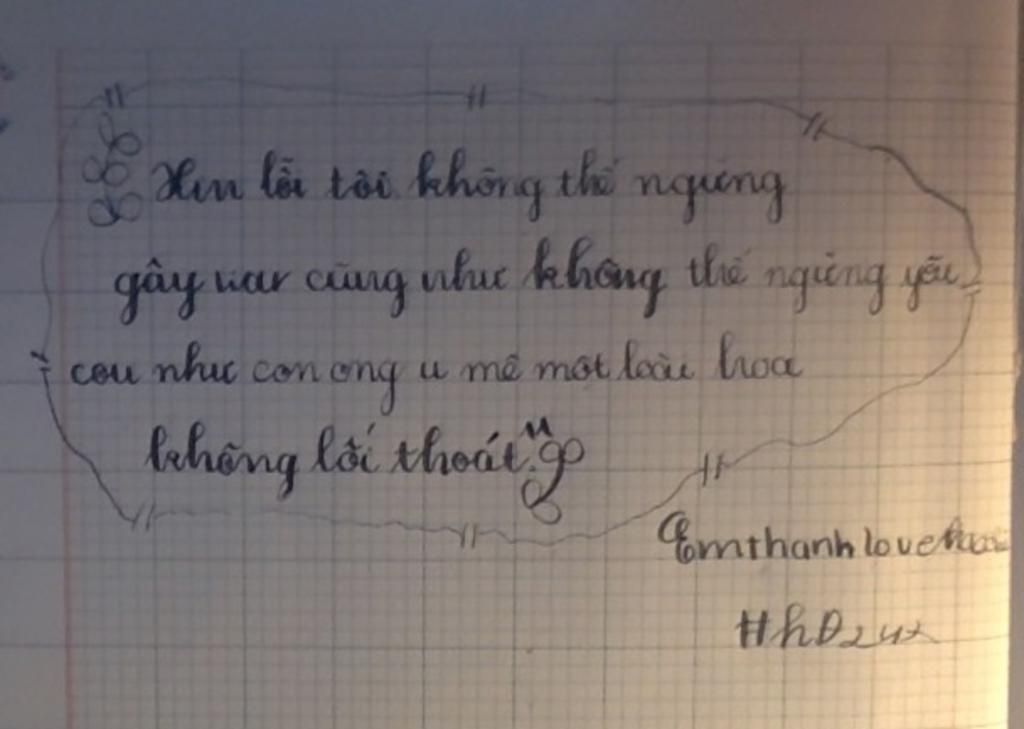 Xin lỗi tôi không thể ngừng
gây war cũng như không thể ngừng yêu
cou như con ong u mê một loài hoa
không lối thoát"
Emthanhlove
#hD24x